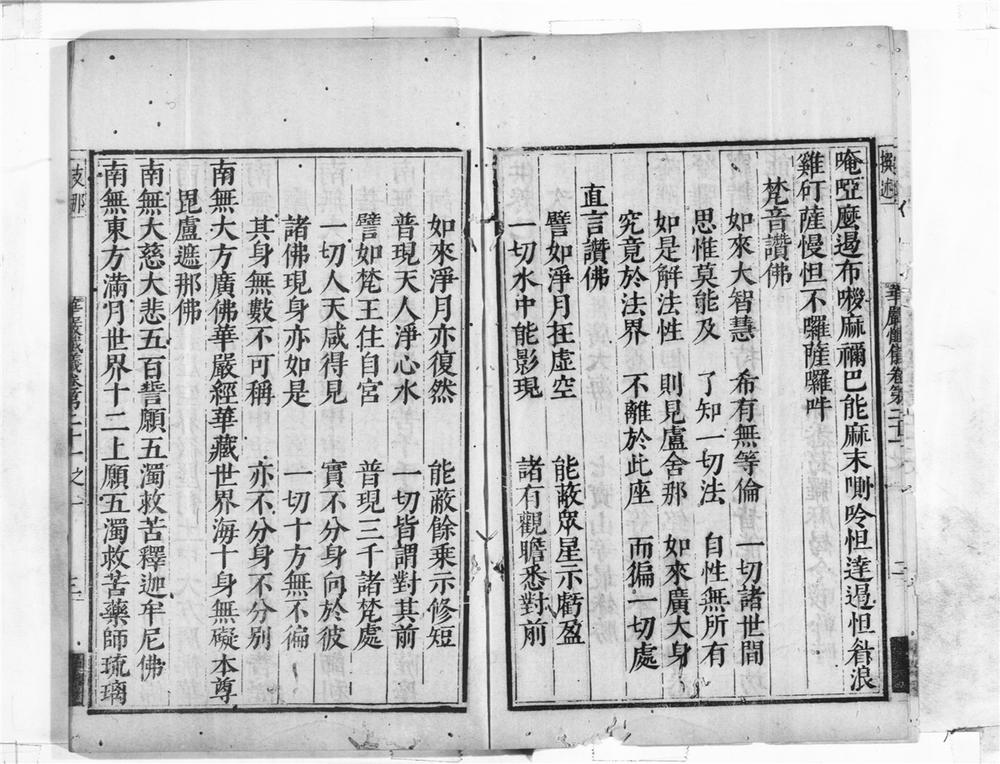 唵啞麼遏布㗚麻禰巴能麻末㘑唥怛達遏怛㫺浪
雞矴薩慢怛不囉薩囉吽
梵音讚佛
如來大智慧 希有無等倫 一切諸世間
思惟莫能及 了知一切法 自性無所有
如是解法性 則見盧舍那 如來廣大身
究竟於法界 不離於此座 而徧一切處
直言讚佛
譬如淨月在虛空 能蔽眾星示虧盈
一切水中能影現 諸有觀瞻悉對前
如來淨月亦復然 能蔽餘乘示修短
普現天人淨心水 一切皆謂對其前
譬如梵王住自宮 普現三千諸梵處
一切人天咸得見 實不分身向於彼
諸佛現身亦如是 一切十方無不徧
其身無數不可稱 亦不分身不分別
南無大方廣佛華嚴經華藏世界海十身無礙本尊
毘盧遮那佛
南無大慈大悲五百誓願五濁救苦釋迦牟尼佛
南無東方滿月世界十二上願五濁救苦藥師琉璃